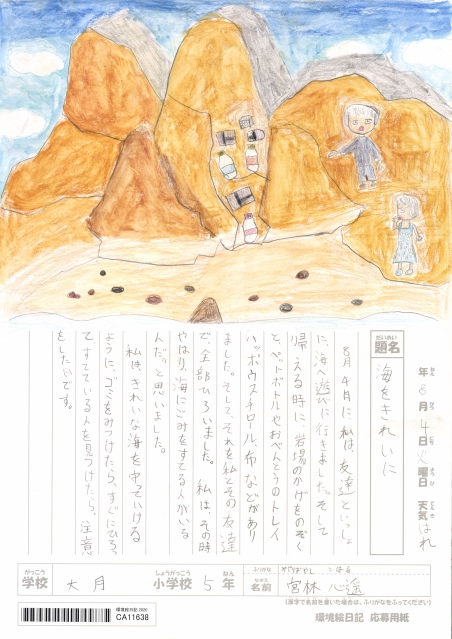 年ねん 8月がつ 4日にち 火曜日ようび 天気てんき はれ
だいめい
題名
海をきれいに
8月4日に私は、友達といっしょ
に、海へ遊びに行きました。そして
帰える時に、岩場のかげをのぞく
と、ペットボトルやおべんとうのトレイ
ハッポウスチロール、布などがあり
ました。そして、それを私とその友達
で全部ひろいました。私は、その時
やはり、海にごみをすてる人がいる
人だっと思いました。
私は、きれいな海を守っていける
ように、ゴミをみつけたら、すぐにひろっ
て、すてている人を見つけたら、注意
をしたいです。
がっこう
学校
大月
しょうがっこう
小学校
5
ねん
年
ふりがな
なまえ
名前
宮林 心遥
(漢字で名前を書いた場合は、ふりがなをふってください)
環境絵日記 2020
CA11638
環境絵日記 応募用紙